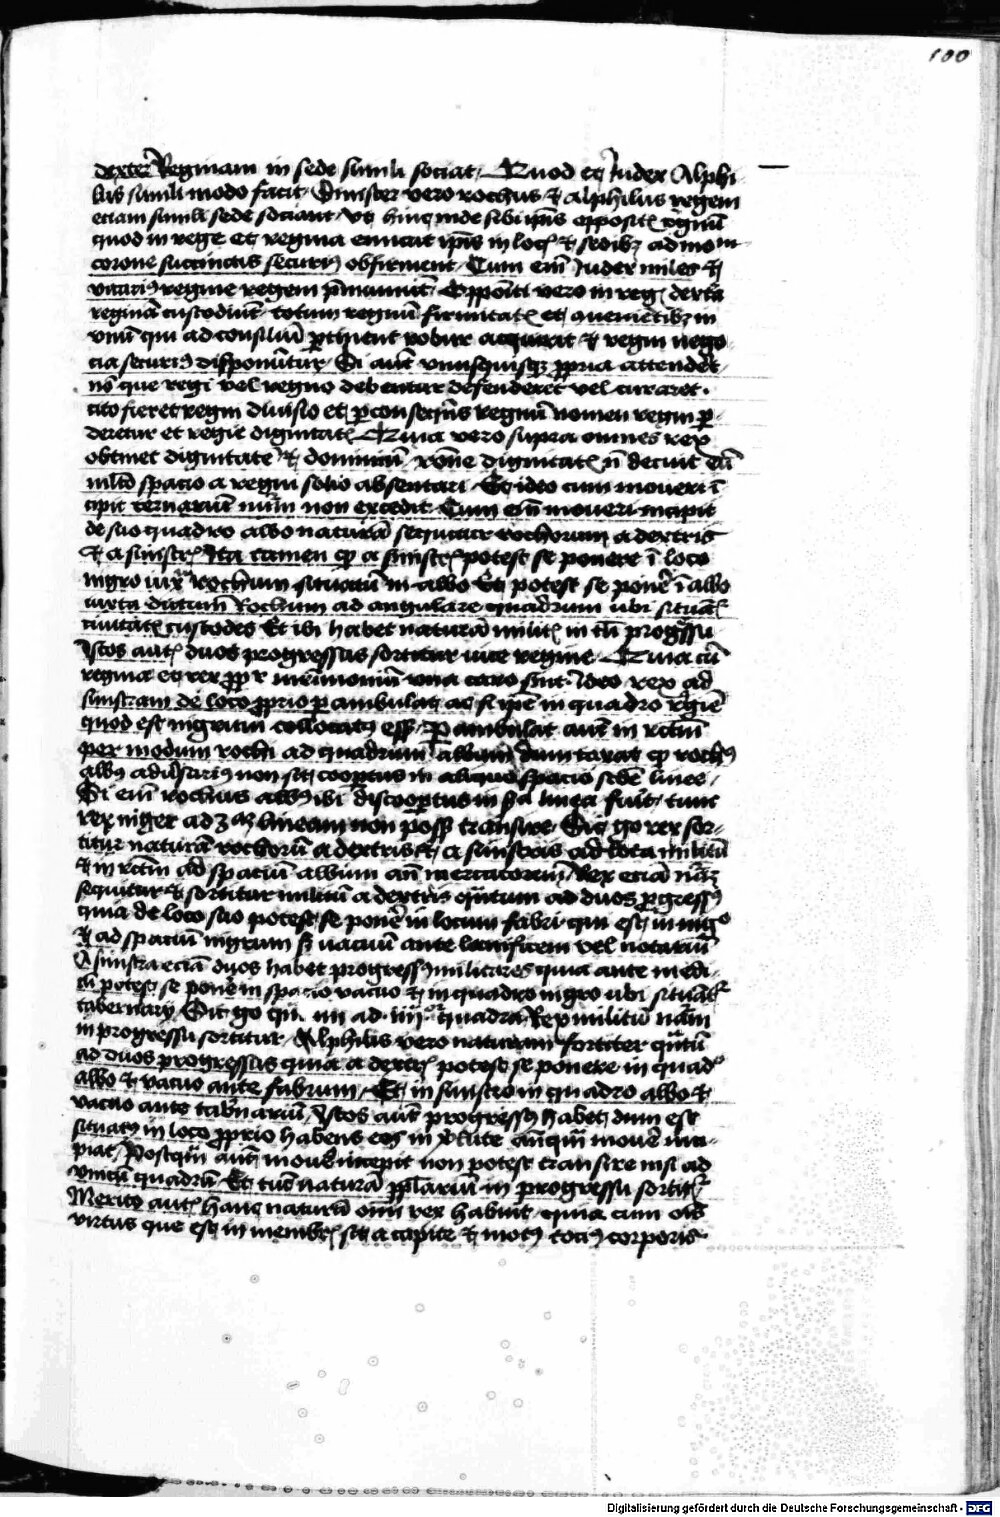 100
dexter Reginam in sede simili sociat Quod et Judex Alphi
lus simili modo facit Sinister vero rochus et alphilus regem
etiam simili sede sociant ut hinc inde sibi ipis oppositi
quod in rege et regina eniteat ipis in locis et sedibz ad mom
corone succinctis securius obfirment Cum eni Judex miles et
vicarius regine regem Oppositi vero in reg dextra
regina custodiut totum regnu firmitate et
vnu qui ad consiliu ptinent robur acquirat et regni nego
cia securius disponutur Si aut vnusquisqz ppria attenderet
no que regi vel regno debentur defenderet vel curaret
cito fieret regni diuisio et p consequens regnu nomen regni p
deretur et regie dignitatis Quia vero supra omnes rex
obtinet dignitate et dominiu rone dignitatis no decuit eu
multo spacio a regni solio absentari Et ideo cum moueri i
cipit ternariu num non excedit Cum eni moueri incipit
de suo quadro albo natura sequitur rochorum a dextris
et a sinistris Ita tamen qp a sinistris potest se ponere i loco
nigro iuxta Rochum situatu in albo et potest se ponere i albo
iuxta dictum Rochum ad angulare quadrum ubi situati
ciuitatis custodes Et ibi habet natura militis in tali progressu
Istos aut duos progressus sortitur vice regine Quia cu
regina et rex ppter mrimonium vna caro sint Ideo rex ad
sinistram de loco pprio pambulat ac si ipse in quadro regine
quod est nigrum collocatus esset Pambulat aut in rectum
per modum rochi ad quadrum album dum taxat qp rochus
albus aduersarius non sit coopertus in aliquo spacio eiusdem linee
Si eni rochus albus ibi discoopertus in sua linea fuit tunc
rex niger ad 3am lineam non posset transire Sic go rex sor
titur natura rochoru a dextris et a sinistris ad loca militu
et in rectum ad spaciu album ante mercatorem Rex etia natura
sequitur et sortitur militu a dextris quantum ad duos pgressus
quia de loco suo potest se ponere in locum fabri qui est in nigro
et ad spaciu nigrum et vacuu ante lanificem vel notariu
A sinistra etia duos habet progressus militares quia ante medi
cu potest se ponere in spacio vacuo et in quadro nigro ubi situati
tabernarii Sic go qn in ad 4 quadra Rex militu natura
in progressu sortitur Alphilis vero naturam fortiter quantu
ad duos progressus quia a dextris potest se ponere in quadro
albo et vacuo ante fabrum Et in sinistro in quadro albo et
vacuo ante tabnariu Istos aut progressus habet dum est
situatus in loco pprio habens eos in virtute antequam mouere inci
piat Postquam aut moueri incepit non potest transire nisi ad
vnicu quadru Et tuc natura pplariu in progressu sortitur
Merito aut hanc natura omni rex habuit quia cum ois
virtus que est in membris sit a capite et motus totius corporis
Digitalisierung gefördert durch die Deutsche Forschungsgemeinschaft - DFG